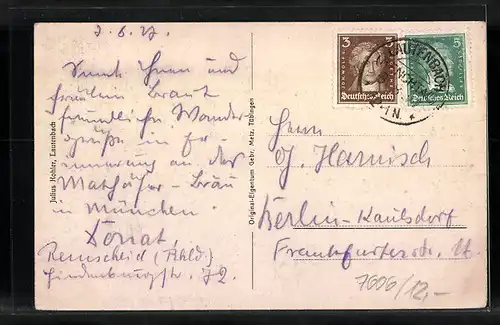 3.6.27.
Samt Ihrem und
Fräulein Braut
freundliche Wander
grüße in Er
innerung an das
Mathäser-Bräu
in München.
Donat,
Remscheid (Rhld.)
Hindenburgstr. 72.
Julius Hohler, Lautenbach
Original-Eigentum Gebr. Metz, Tübingen
3 3
Deutsches Reich
5 5
Deutsches Reich
LAUTENBACH
Herrn
G. Harnisch
Berlin-Kaulsdorf
Frankfurterstr. 16
7606/12,-